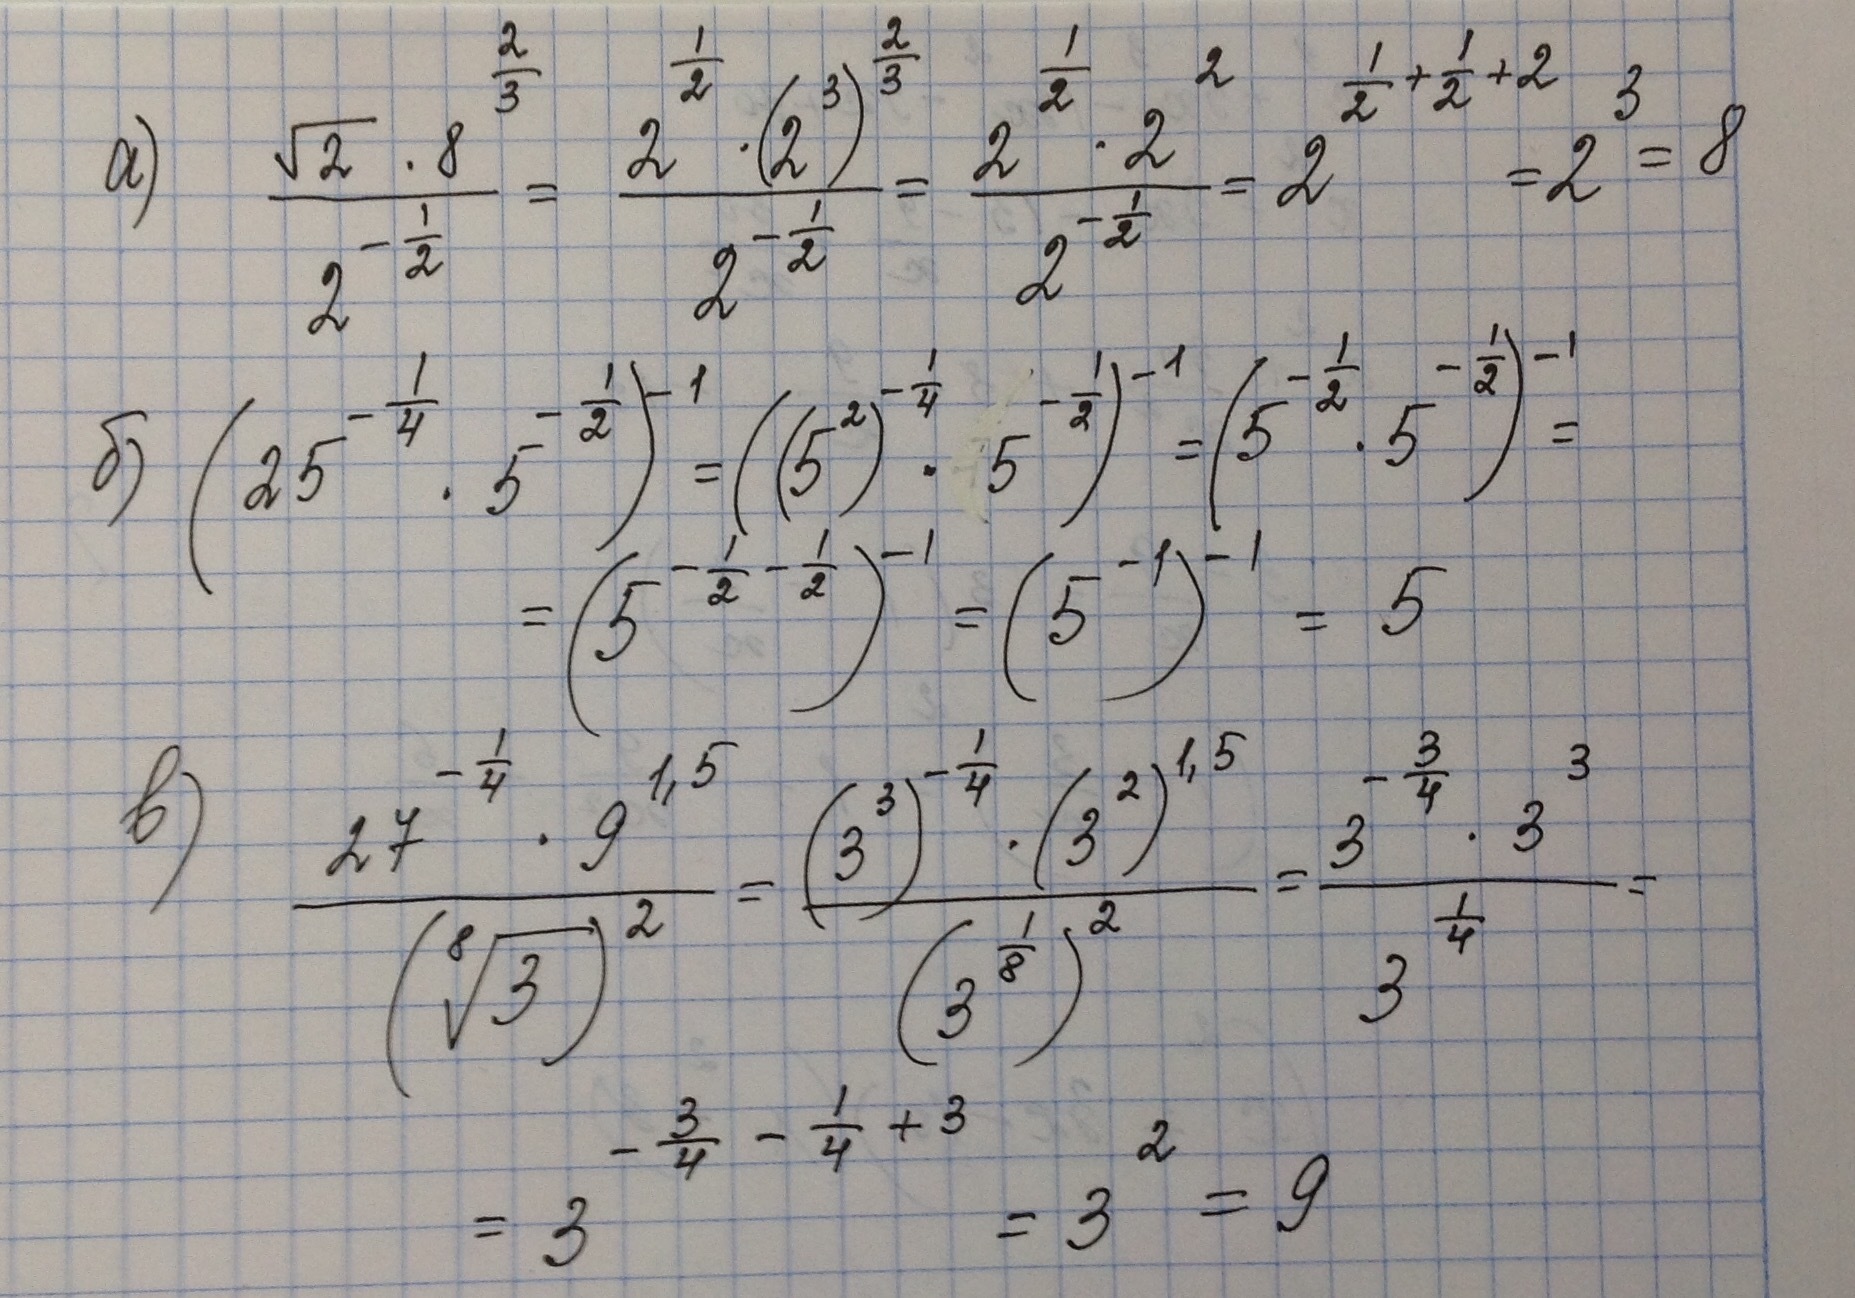 а) (√2 · 8^(2/3)) / 2^(-1/2) = (2^(1/2) · (2^3)^(2/3)) / 2^(-1/2) = (2^(1/2) · 2^2) / 2^(-1/2) = 2^(1/2+1/2+2) = 2^3 = 8
б) (25^(-1/4) · 5^(-1/2))^(-1) = ((5^2)^(-1/4) · 5^(-1/2))^(-1) = (5^(-1/2) · 5^(-1/2))^(-1) =
= (5^(-1/2-1/2))^(-1) = (5^(-1))^(-1) = 5
в) (27^(-1/4) · 9^(1,5)) / (⁸√3)^2 = ((3^3)^(-1/4) · (3^2)^(1,5)) / (3^(1/8))^2 = (3^(-3/4) · 3^3) / 3^(1/4) =
= 3^(-3/4-1/4+3) = 3^2 = 9